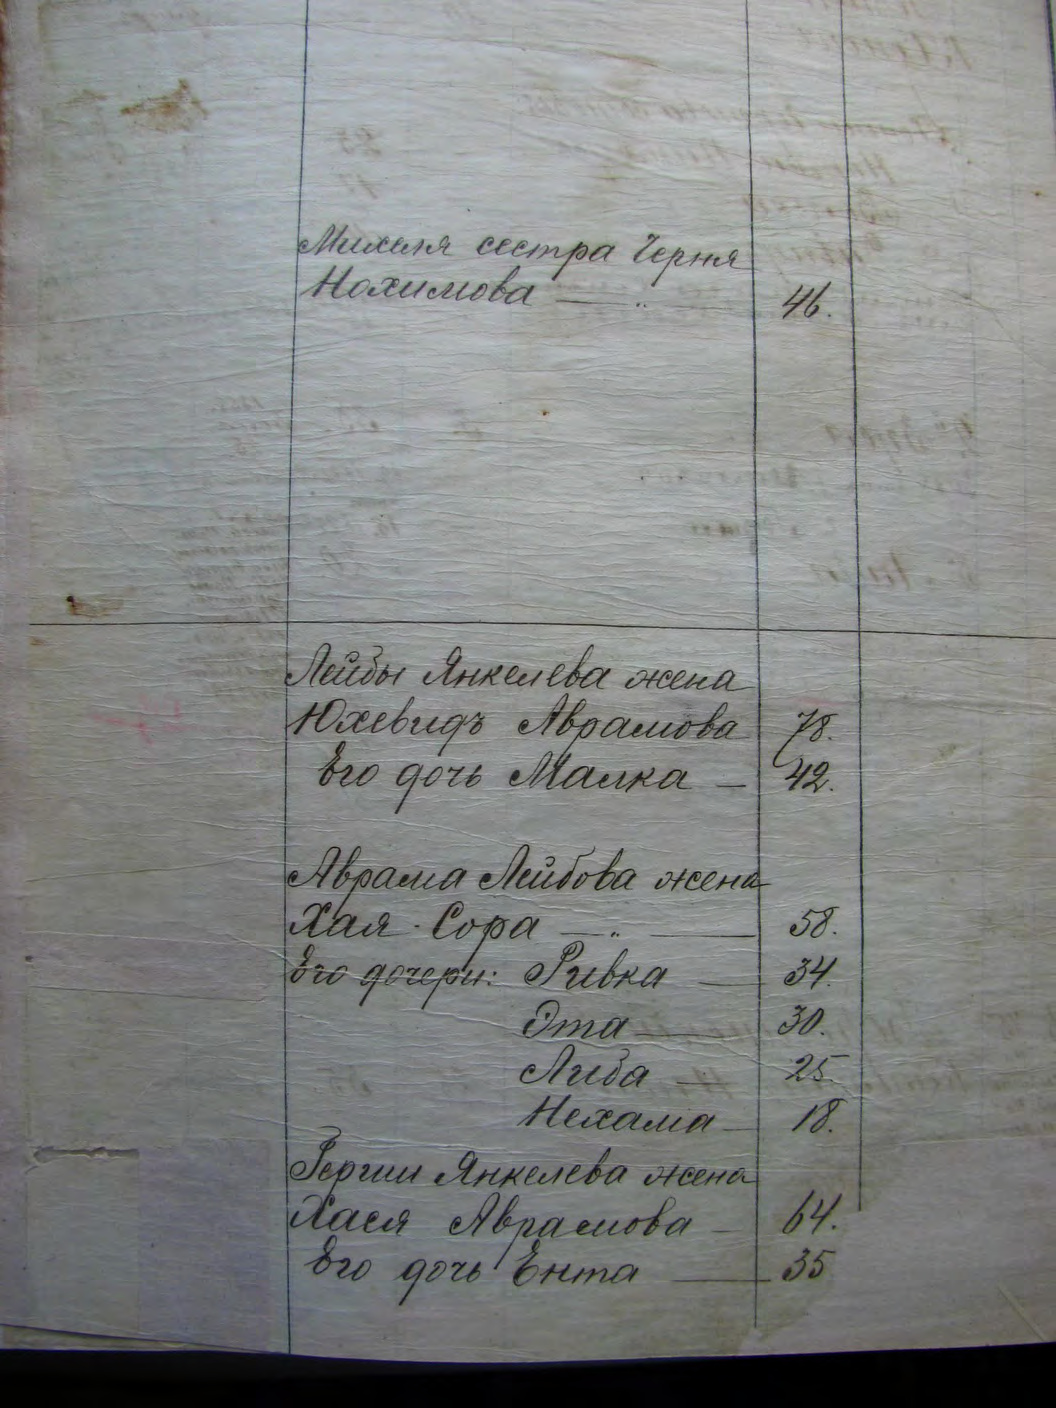 Михеля сестра Черня
Нохимова — " 46.
Лейбы Янкелева жена
Юхевидъ Аврамова 78.
Его дочь Малка — 42.
Аврама Лейбова жена
Хая-Сора — " — 58.
Его дочери: Ривка — 34.
Эта — 30.
Либа — 25.
Нехама — 18.
Гершии Янкелева жена
Хася Аврамова — 64.
Его дочь Ента — 35